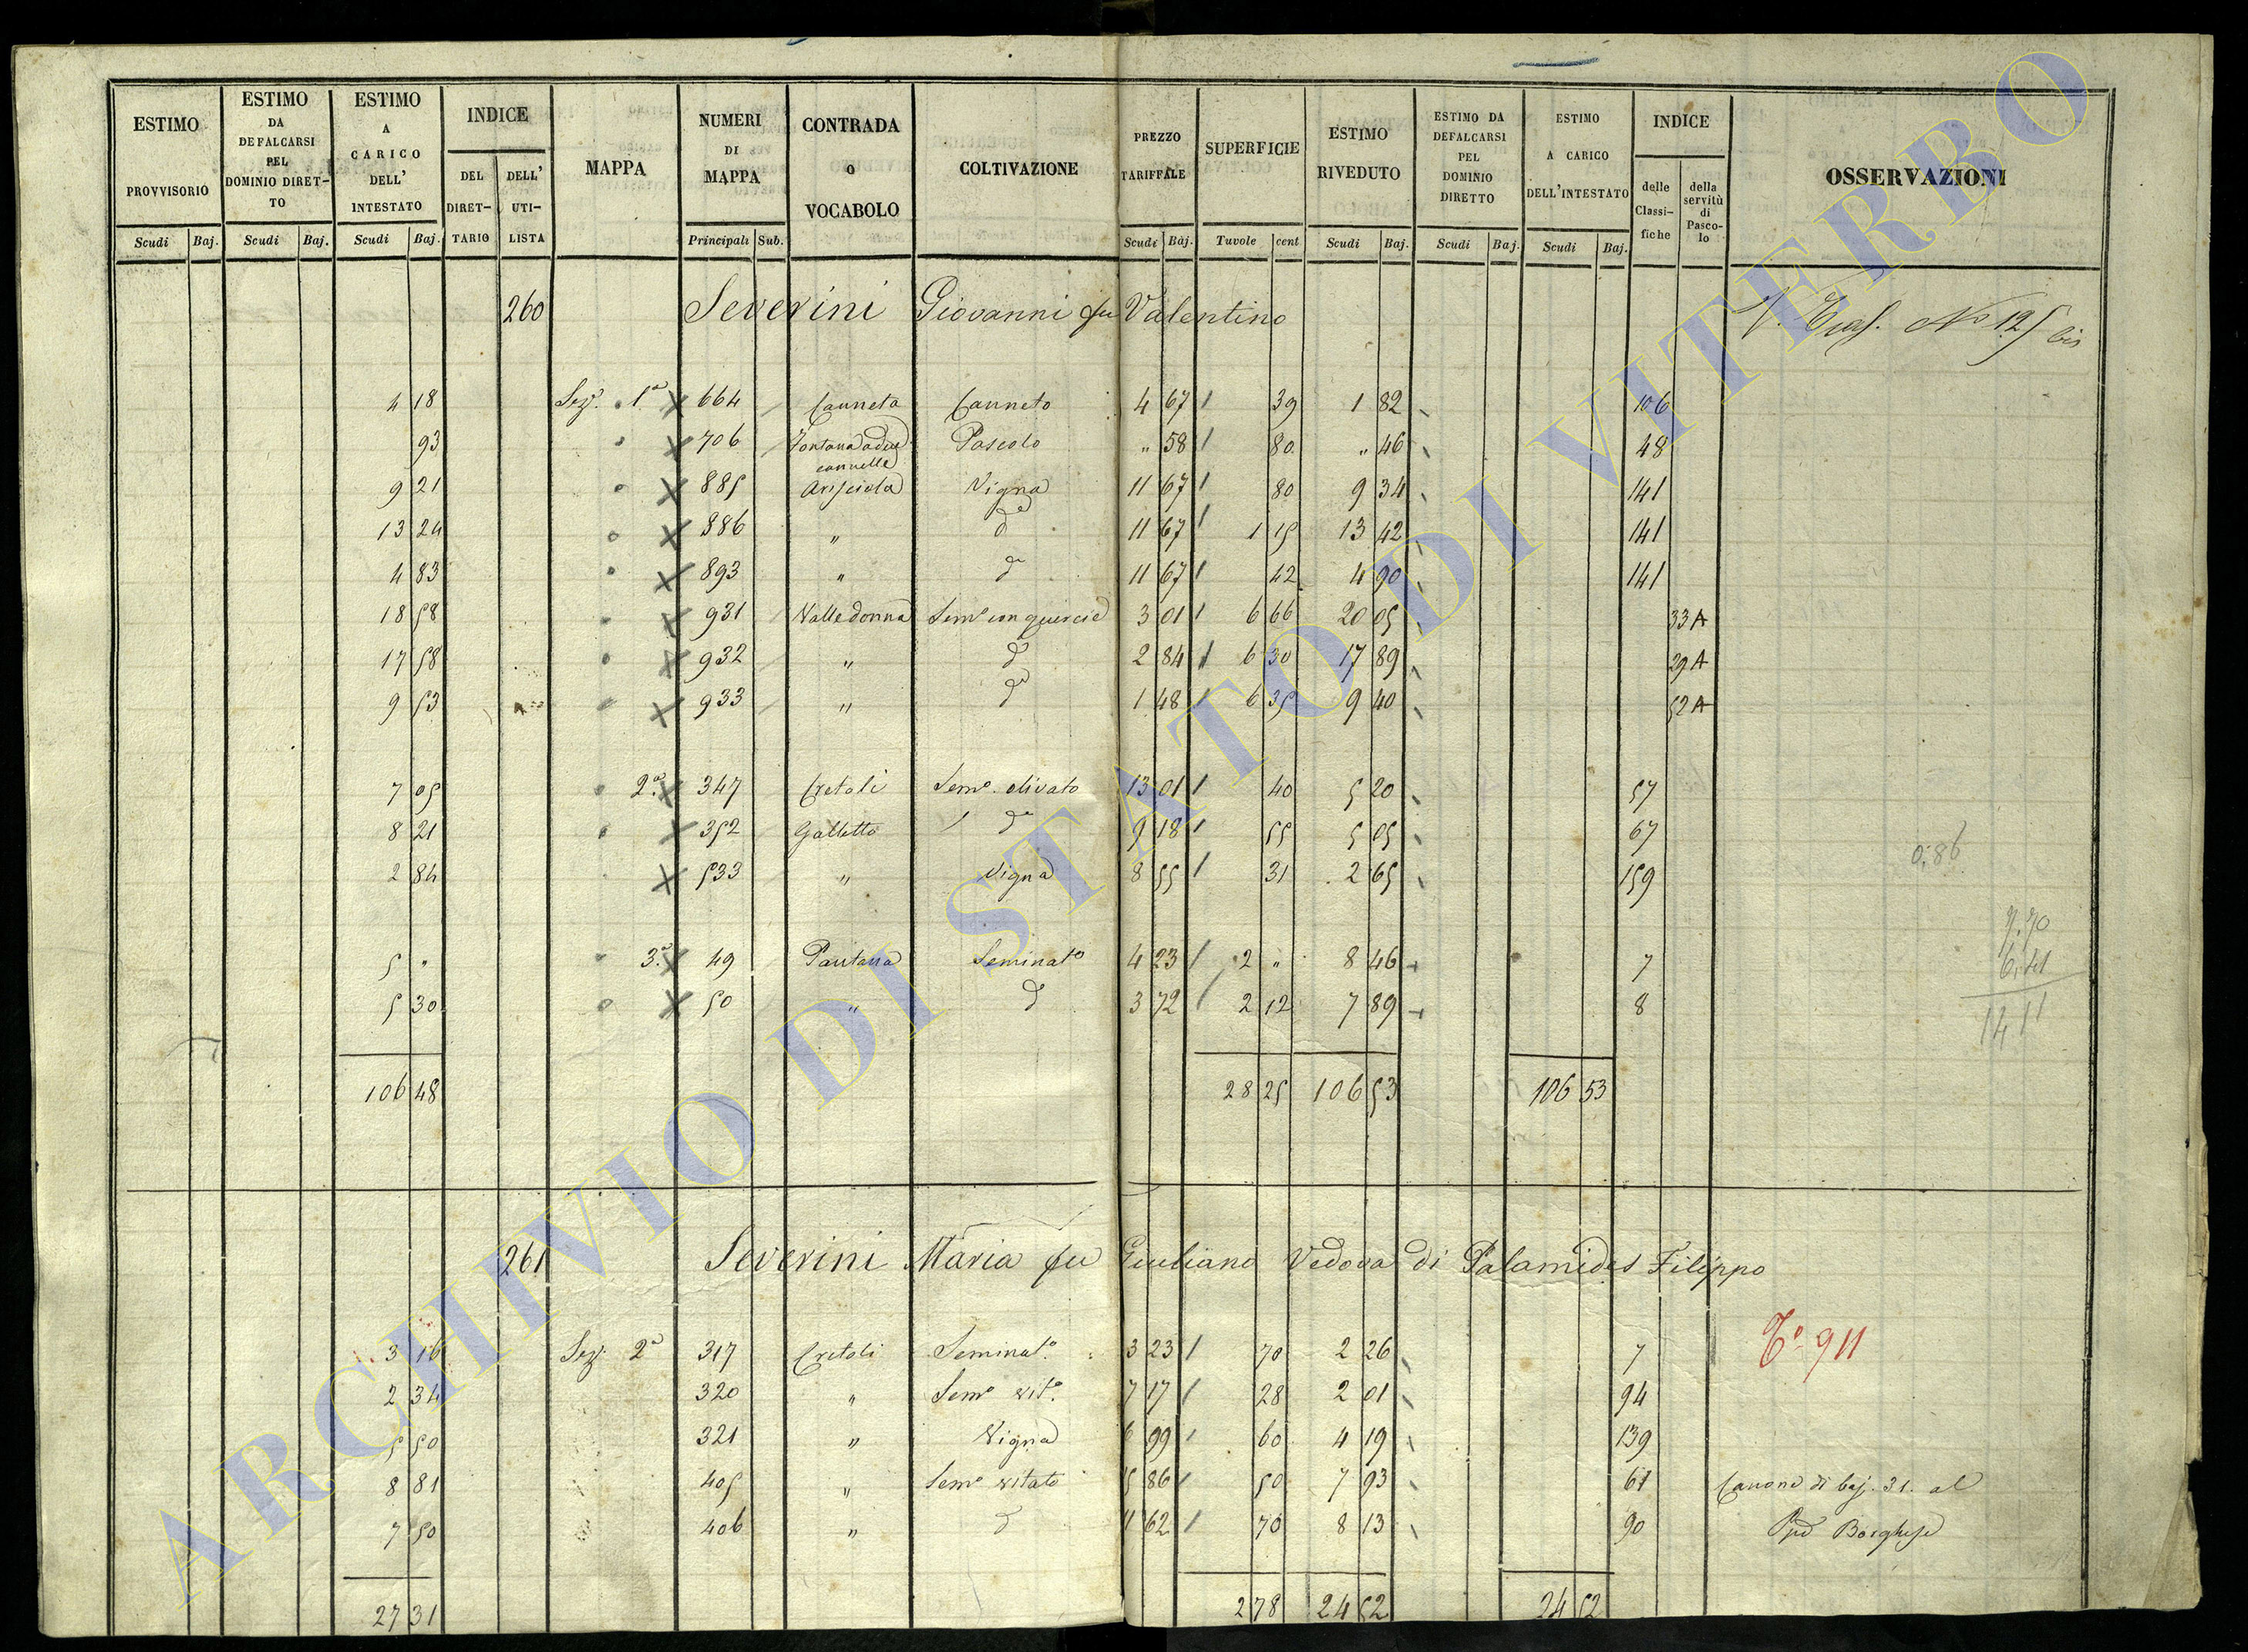 ESTIMO PROVVISORIO | ESTIMO DA DEFALCARSI PEL DOMINIO DIRET-TO | ESTIMO A CARICO DELL' INTESTATO | INDICE | MAPPA | NUMERI DI MAPPA | CONTRADA O VOCABOLO | COLTIVAZIONE | PREZZO TARIFFALE | SUPERFICIE | ESTIMO RIVEDUTO | ESTIMO DA DEFALCARSI PEL DOMINIO DIRETTO | ESTIMO A CARICO DELL'INTESTATO | INDICE | OSSERVAZIONI
DEL DIRET-TARIO | DELL' UTI-LISTA | delle Classi-fiche | della servitù di Pasco-lo
Scudi | Baj. | Scudi | Baj. | Scudi | Baj. | Principali | Sub. | Scudi | Baj. | Tavole | cent | Scudi | Baj. | Scudi | Baj. | Scudi | Baj.
260 Severini Giovanni fu Valentino No 125 bis
4 18 Sez. 1a 664 Canneta Canneto 4 67 39 1 82 106
93 706 Fontana a due cannelle Pascolo " 58 80 " 46 48
9 21 885 Vigna 11 67 80 9 34 141
13 24 886 " d 11 67 1 15 13 42 141
4 83 893 " d 11 67 42 4 90 141
18 58 931 Valle donna Semo con quercie 3 01 6 66 20 05 33A
17 58 932 " d 2 84 6 30 17 89 29A
9 53 933 " d 1 48 6 35 9 40 52A
7 05 2a 347 Cretoli Semo. olivato 13 01 40 5 20 57
8 21 352 Galletto d 9 18 55 5 05 67
2 84 533 " Vigna 8 55 31 2 65 159
0:86
5 " 3a 49 Pantana Seminato 4 23 2 " 8 46 7
5 30 50 " d 3 72 2 12 7 89 8
7.70
6.41
14 11
106 48 28 25 106 53 106 53
261 Severini Maria fu Giuliano Vedova di Palamides Filippo
3 16 Sez. 2a 317 Cretoli Seminato. 3 23 70 2 26 7 To 911
2 34 320 " Semo vito. 7 17 28 2 01 94
5 50 321 " Vigna 6 99 60 4 19 139
8 81 405 " Semo vitato 15 86 50 7 93 61 Canone di baj. 31. al
7 50 406 " d 11 62 70 8 13 90 Borghese
27 31 2 78 24 52 24 52
ARCHIVIO DI STATO DI VITERBO